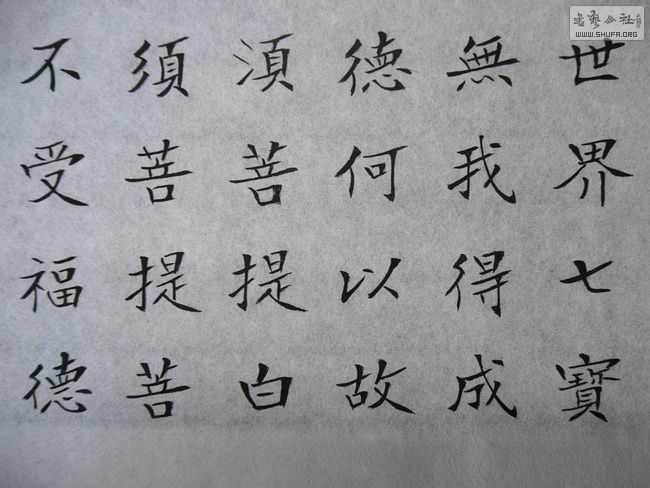 世界七寶
無我得成
德何以故
湏菩提白
須菩提菩
不受福德
書藝公社
WWW.SHUFA.ORG